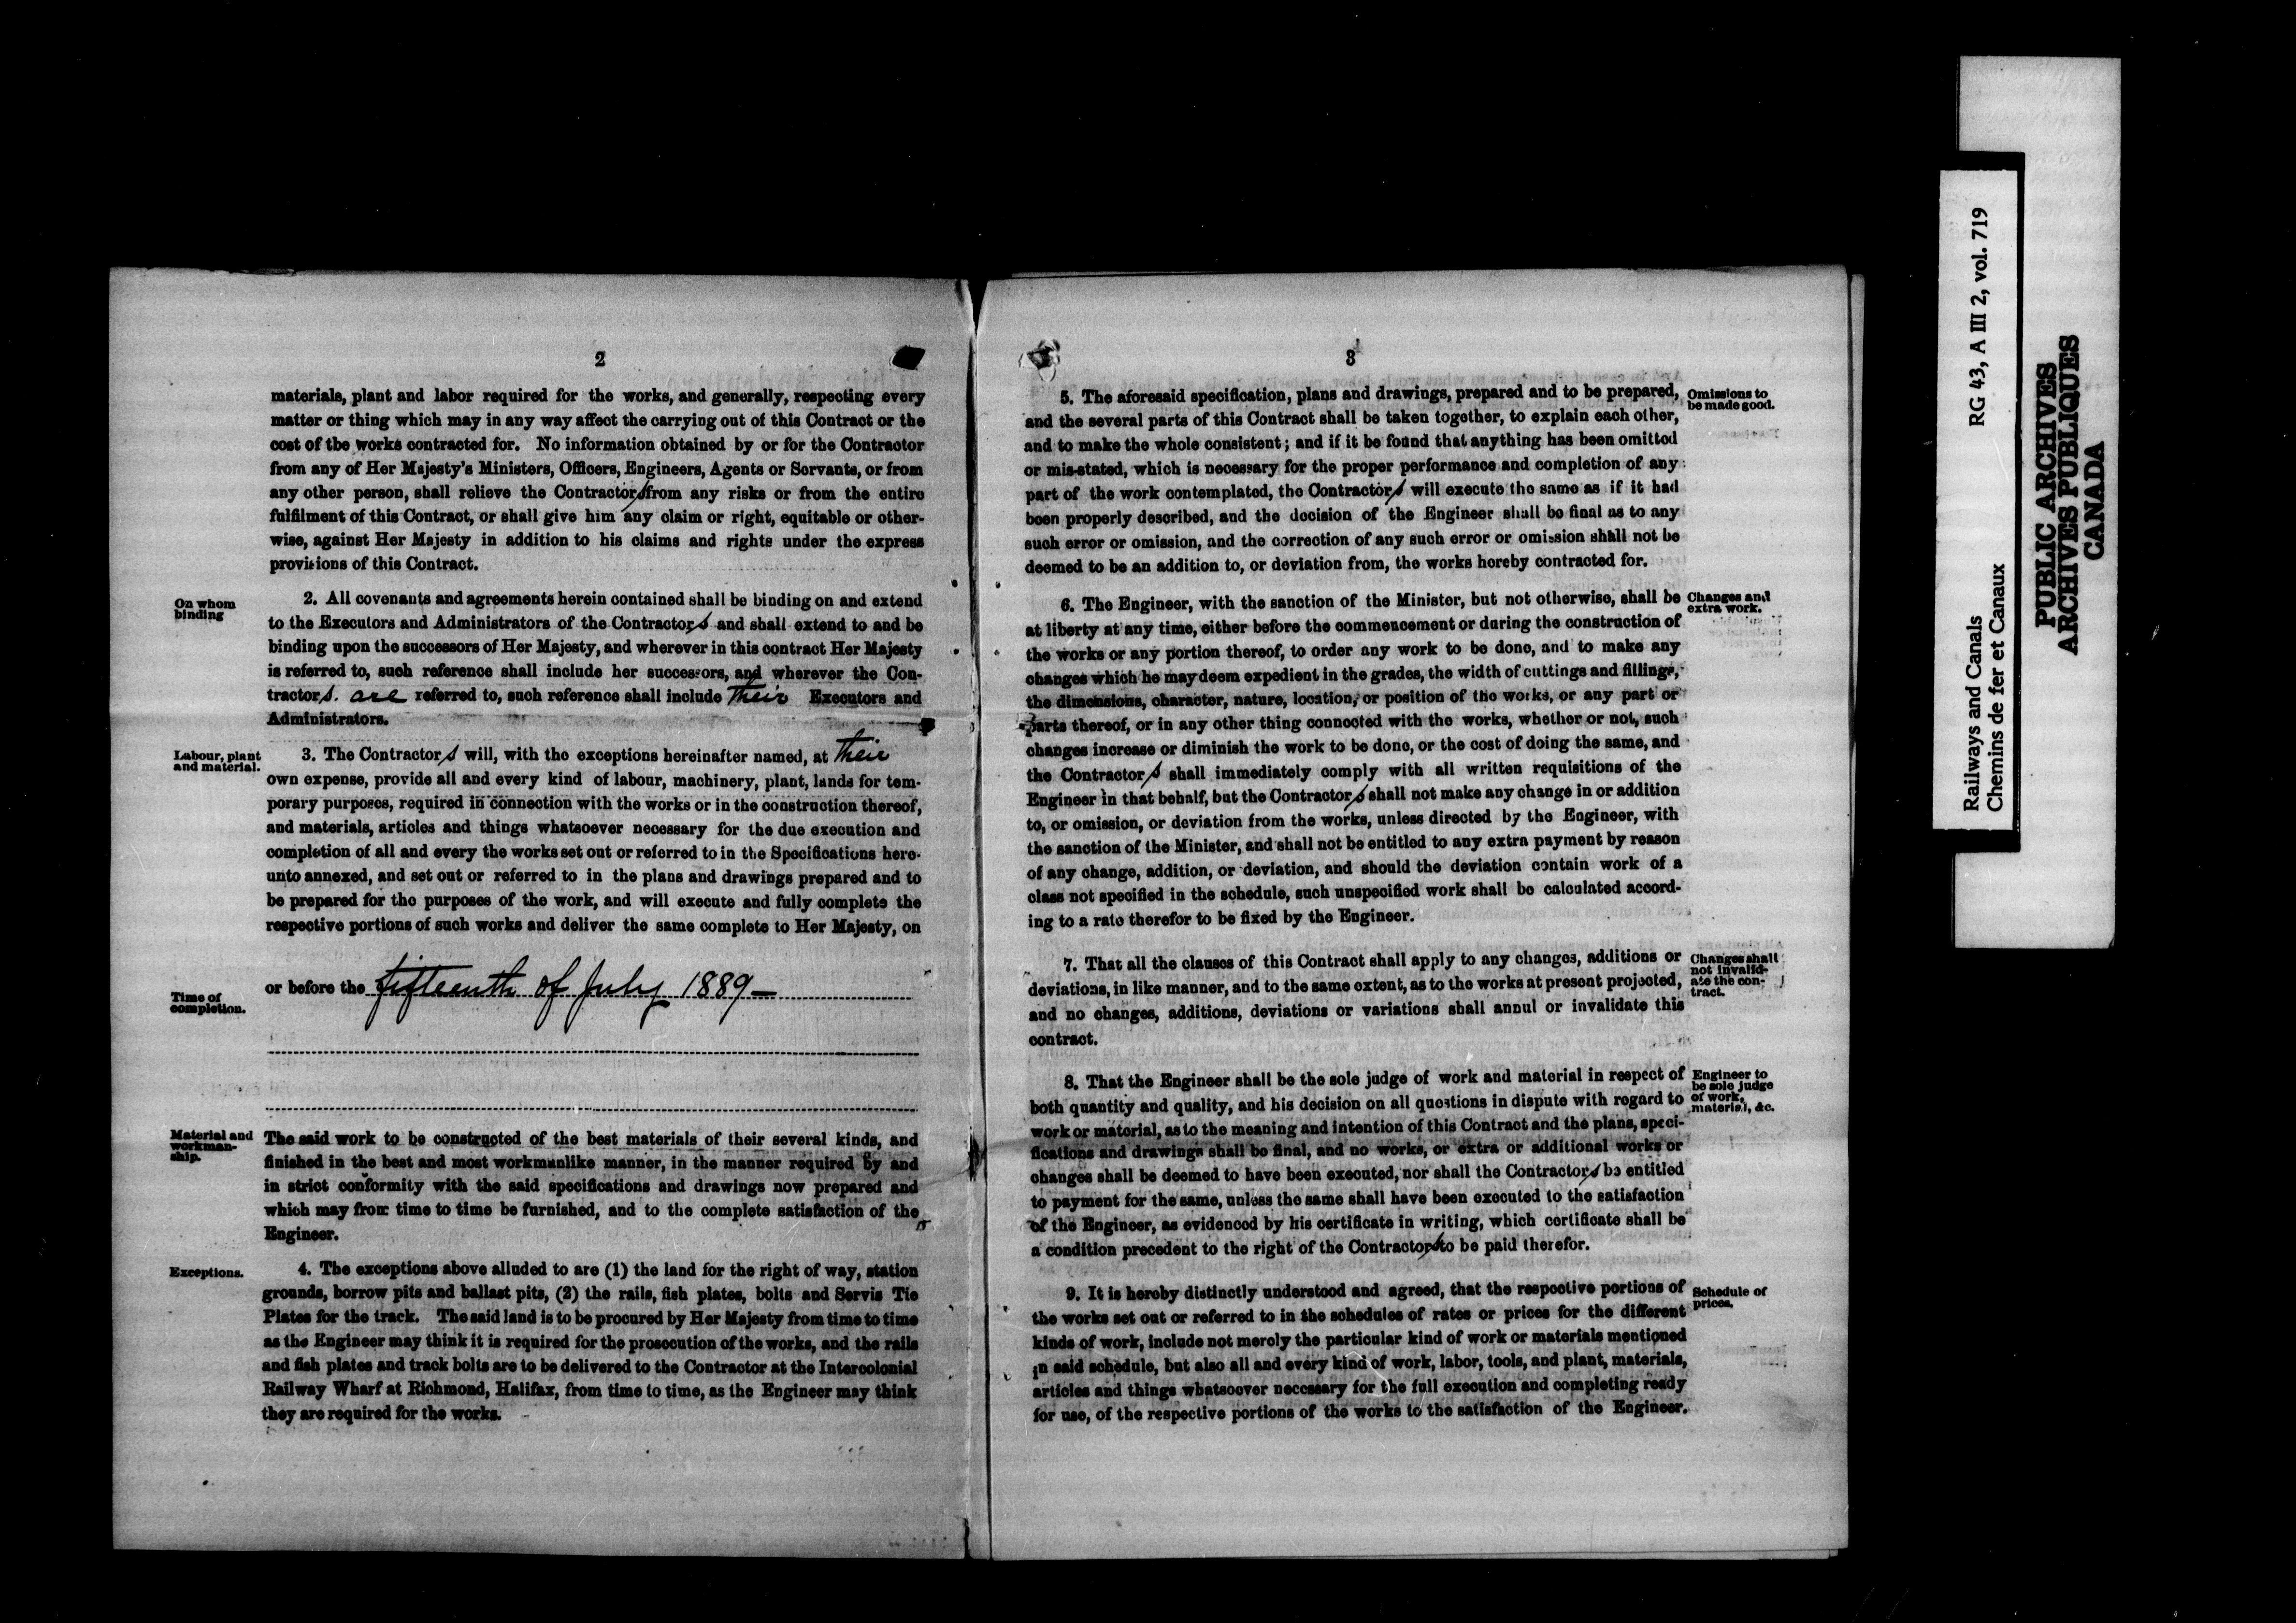 2
materials, plant and labor required for the works, and generally, respecting every
matter or thing which may in any way affect the carrying out of this Contract or the
cost of the works contracted for. No information obtained by or for the Contractor
from any of Her Majesty's Ministers, Officers, Engineers, Agents or Servants, or from
any other person, shall relieve the Contractors from any risks or from the entire
fulfilment of this Contract, or shall give him any claim or right, equitable or other-
wise, against Her Majesty in addition to his claims and rights under the express
provisions of this Contract.
On whom
binding
2. All covenants and agreements herein contained shall be binding on and extend
to the Executors and Administrators of the Contractors and shall extend to and be
binding upon the successors of Her Majesty, and wherever in this contract Her Majesty
is referred to, such reference shall include her successors, and wherever the Con-
tractors. are referred to, such reference shall include their Executors and
Administrators.
Labour, plant
and material.
3. The Contractors will, with the exceptions hereinafter named, at their
own expense, provide all and every kind of labour, machinery, plant, lands for tem-
porary purposes, required in connection with the works or in the construction thereof,
and materials, articles and things whatsoever necessary for the due execution and
completion of all and every the works set out or referred to in the Specifications here-
unto annexed, and set out or referred to in the plans and drawings prepared and to
be prepared for the purposes of the work, and will execute and fully complete the
respective portions of such works and deliver the same complete to Her Majesty, on
Time of
completion.
or before the fifteenth of July 1889—
Material and
workman-
ship.
The said work to be constructed of the best materials of their several kinds, and
finished in the best and most workmanlike manner, in the manner required by and
in strict conformity with the said specifications and drawings now prepared and
which may from time to time be furnished, and to the complete satisfaction of the
Engineer.
Exceptions.
4. The exceptions above alluded to are (1) the land for the right of way, station
grounds, borrow pits and ballast pits, (2) the rails, fish plates, bolts and Servis Tie
Plates for the track. The said land is to be procured by Her Majesty from time to time
as the Engineer may think it is required for the prosecution of the works, and the rails
and fish plates and track bolts are to be delivered to the Contractor at the Intercolonial
Railway Wharf at Richmond, Halifax, from time to time, as the Engineer may think
they are required for the works.
3
5. The aforesaid specification, plans and drawings, prepared and to be prepared,
and the several parts of this Contract shall be taken together, to explain each other,
and to make the whole consistent; and if it be found that anything has been omitted
or mis-stated, which is necessary for the proper performance and completion of any
part of the work contemplated, the Contractors will execute the same as if it had
been properly described, and the decision of the Engineer shall be final as to any
such error or omission, and the correction of any such error or omission shall not be
deemed to be an addition to, or deviation from, the works hereby contracted for.
Omissions to
be made good.
6. The Engineer, with the sanction of the Minister, but not otherwise, shall be
at liberty at any time, either before the commencement or during the construction of
the works or any portion thereof, to order any work to be done, and to make any
changes which he may deem expedient in the grades, the width of cuttings and fillings,
the dimensions, character, nature, location, or position of the works, or any part or
parts thereof, or in any other thing connected with the works, whether or not, such
changes increase or diminish the work to be done, or the cost of doing the same, and
the Contractors shall immediately comply with all written requisitions of the
Engineer in that behalf, but the Contractors shall not make any change in or addition
to, or omission, or deviation from the works, unless directed by the Engineer, with
the sanction of the Minister, and shall not be entitled to any extra payment by reason
of any change, addition, or deviation, and should the deviation contain work of a
class not specified in the schedule, such unspecified work shall be calculated accord-
ing to a rate therefor to be fixed by the Engineer.
Changes and
extra work.
7. That all the clauses of this Contract shall apply to any changes, additions or
deviations, in like manner, and to the same extent, as to the works at present projected,
and no changes, additions, deviations or variations shall annul or invalidate this
contract.
Changes shall
not invalid-
ate the con-
tract.
8. That the Engineer shall be the sole judge of work and material in respect of
both quantity and quality, and his decision on all questions in dispute with regard to
work or material, as to the meaning and intention of this Contract and the plans, speci-
fications and drawings shall be final, and no works, or extra or additional works or
changes shall be deemed to have been executed, nor shall the Contractors be entitled
to payment for the same, unless the same shall have been executed to the satisfaction
of the Engineer, as evidenced by his certificate in writing, which certificate shall be
a condition precedent to the right of the Contractors to be paid therefor.
Engineer to
be sole judge
of work,
material, &c.
9. It is hereby distinctly understood and agreed, that the respective portions of
the works set out or referred to in the schedules of rates or prices for the different
kinds of work, include not merely the particular kind of work or materials mentioned
in said schedule, but also all and every kind of work, labor, tools, and plant, materials,
articles and things whatsoever necessary for the full execution and completing ready
for use, of the respective portions of the works to the satisfaction of the Engineer.
Schedule of
prices.
Railways and Canals RG 43, A III 2, vol. 719
Chemins de fer et Canaux
PUBLIC ARCHIVES
ARCHIVES PUBLIQUES
CANADA